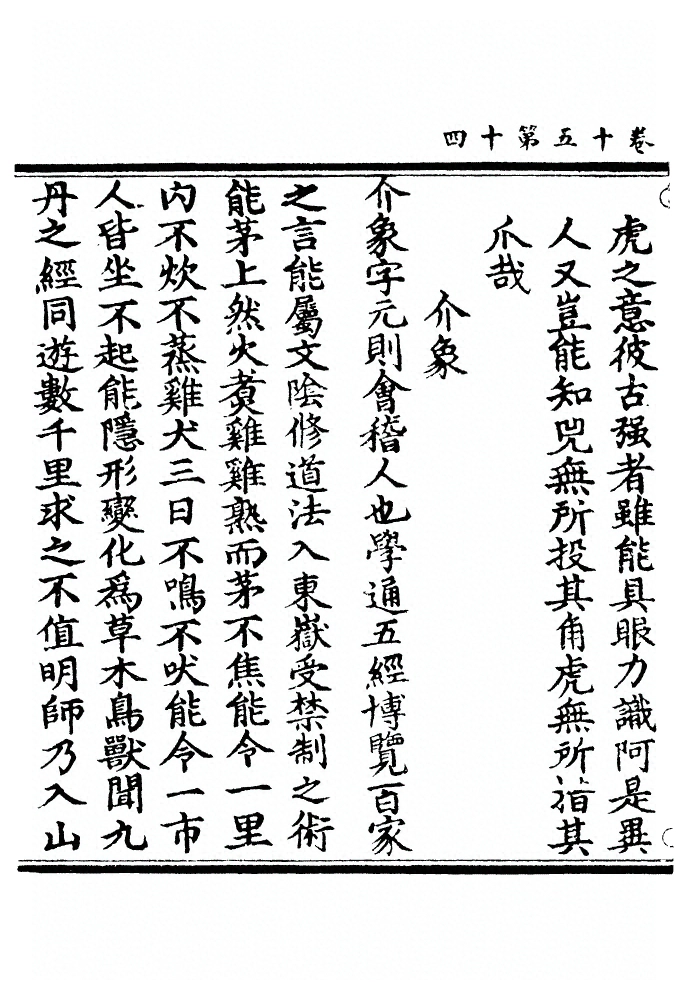 卷十五第十四
虎之意彼古强者雖能具眼力識阿是異
人又豈能知兕無所投其角虎無所措其
爪哉
介象
介象字元則會稽人也學通五經博覽百家
之言能屬文陰修道法入東嶽受禁制之術
能茅上然火煑雞雞熟而茅不焦能令一里
内不炊不蒸雞犬三日不鳴不吠能令一市
人皆坐不起能隱形變化爲草木鳥獸聞九
丹之經同遊數千里求之不值明師乃入山